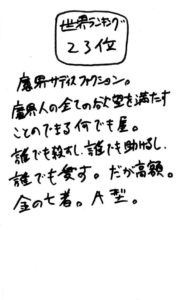 世界ランキング
23位
魔界サティスファクション。
魔界人の全ての欲望を満たす
ことのできる何でも屋。
誰でも殺すし、誰でも助けるし、
誰でも愛す。だが高額。
金の亡者。A型。